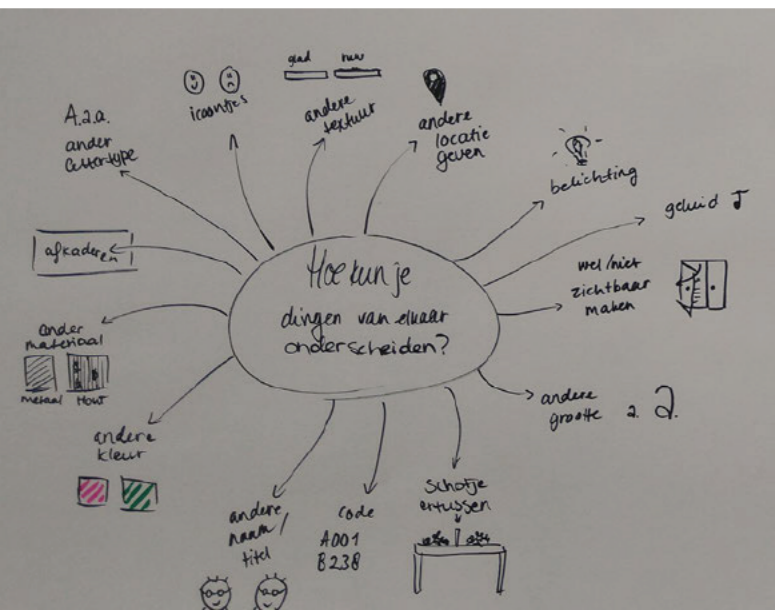 Hoe kun je
dingen van elkaar
onderscheiden?
A.a.a.
ander
lettertype
icoontjes
glad ruw
andere
textuur
andere
locatie
geven
belichting
geluid
wel/niet
zichtbaar
maken
andere
grootte a. a.
schotje
ertussen
code
A001
B238
andere
naam/
titel
andere
kleur
ander
materiaal
metaal Hout
afkaderen